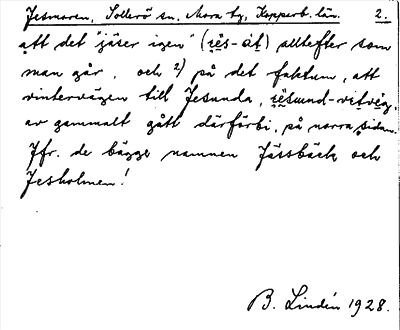 Jesmoren, Sollerö sn, Mora tg, Kopparb. län. 2.
att det "jäser igen" (rẹ̈s-át) alltefter som
man går, och 2) på det faktum, att
vintervägen till Jesunda, rẹ̈smund-vitvẹg,
av gammalt gått därförbi, på norra sidan.
Jfr. de bägge namnen Jässbäck och
Jesholmen!
B. Lindén 1928.